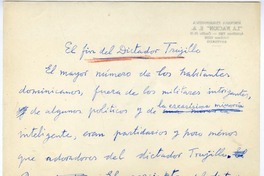 El fin del Dictador Trujillo
El mayor número de los habitantes
dominicanos, fuera de los militares inteligentes,
de algunos políticos y de la escasísima minoría
inteligente, eran partidarios y poco menos
que adoradores del dictador Trujillo.